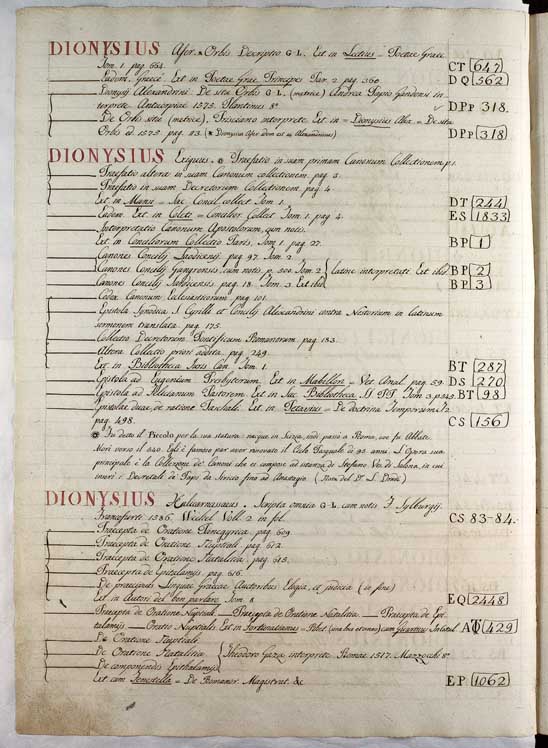 DIONYSIUS Afer. Orbis Descriptio G-L. Ext in Lectius = Poetae Graec.
Tom. 1. pag. 654. CT 647
Eadem. Graecè. Ext in Poetae Grae. Principes Par. 2. pag. 360. DQ 562
Dionysij Alexandrini. De situ Orbis G-L. (metrice) Andrea Papio Gandensi in-
terprete Antuerpiae 1575. Plantinus 8° DPp 318.
De Orbis situ (metrice), Prisciano interprete. Ext in = Dionysius Afer = De situ
Orbis ed 1575 pag. 83. DPp 318
DIONYSIUS Exiguus. Praefatio in suam primam Canonum Collectionem p. 1.
Praefatio altera in suam Canonum collectionem pag. 3.
Praefatio in suam Decretorum Collectionem pag. 4.
Ext in = Sac. Concil. collect. Tom. 1. DT 244
Eadem Ext. in Colets = Concilior. Collect. Tom. 1. pag. 4. ES 1833
Interpretatio Canonum Apostolorum, cum notis.
Ext. in Conciliorum Collectio Paris. Tom. 1 pag. 27. BP 1
Canones Concilij Laodiceni pag. 97. Tom. 2.
Canones Concilij Gangrensis, cum notis p. 300. Tom. 2. latine interpretati. Ext ibid BP 2
Canones Concilij Sardicensis pag. 18. Tom. 3. Ext ibid BP 3
Codex Canonum Ecclesiasticorum pag. 101.
Epistola Synodica S. Cyrilli et Concilij Alexandrini contra Nestorium in latinum
sermonem translata pag. 175.
Collectio Decretorum Pontificum Romanorum pag. 183.
Altera Collectio priori addita pag. 249.
Ext. in Bibliotheca Iuris Can. Tom. 1. BT 287
Epistola ad Eugenium Presbyterum. Ext in Mabillon = Vet. Anal. pag. 59. DS 270
Epistola ad Pastorem. Ext in Sac. Bibliotheca SS. PP. Tom. 3. BT 98
Epistolae duae, de ratione Paschali. Ext. in Petavius = De doctrina Temporum
pag. 498. CS 156
Fu detto il Piccolo per la sua statura: nacque in Scizia, indi passò a Roma, ove fu Abbate.
Morì verso il 540. Egli è famoso per aver rinovato il Ciclo Pasquale di 95 anni. L'Opera sua
principale è la Collezione de' Canoni che ei compose ad istanza di Stefano Ves. di Salona, in cui
inserì i Decretali de' Papi da Siricio fino ad Anastagio
DIONYSIUS Halicarnasseus. Scripta omnia G-L. cum notis F. Sylburgij.
Francfurti 1586. Wechel Voll. 2 in fol. CS 83-84.
Praecepta de Oratione Panegyrica pag. 609.
Praecepta de Oratione Nuptiali pag. 612.
Praecepta de Oratione Natalitia pag. 615.
Praecepta de Epitalamijs pag. 616.
De praecipuis Linguae Graecae Auctoribus Elogia, et judicia (in fine)
Ext in Autori del ben parlare Tom. 8. EQ 2448
Praecepta de Oratione Nuptiali. Praecepta de Oratione Natalitia. Praecepta de Epi-
talamijs. Oratio Nuptialis. Ext in Fortunatianus = cum AΦ 429
De Oratione Nuptiali
De Oratione Natalitia Theodoro Gaza interprete Romae 1517. Mazzocchi 8°
De componendis Epithalamijs
Ext cum Fenestella = De Romanor. Magistrat. &c. EP 1062